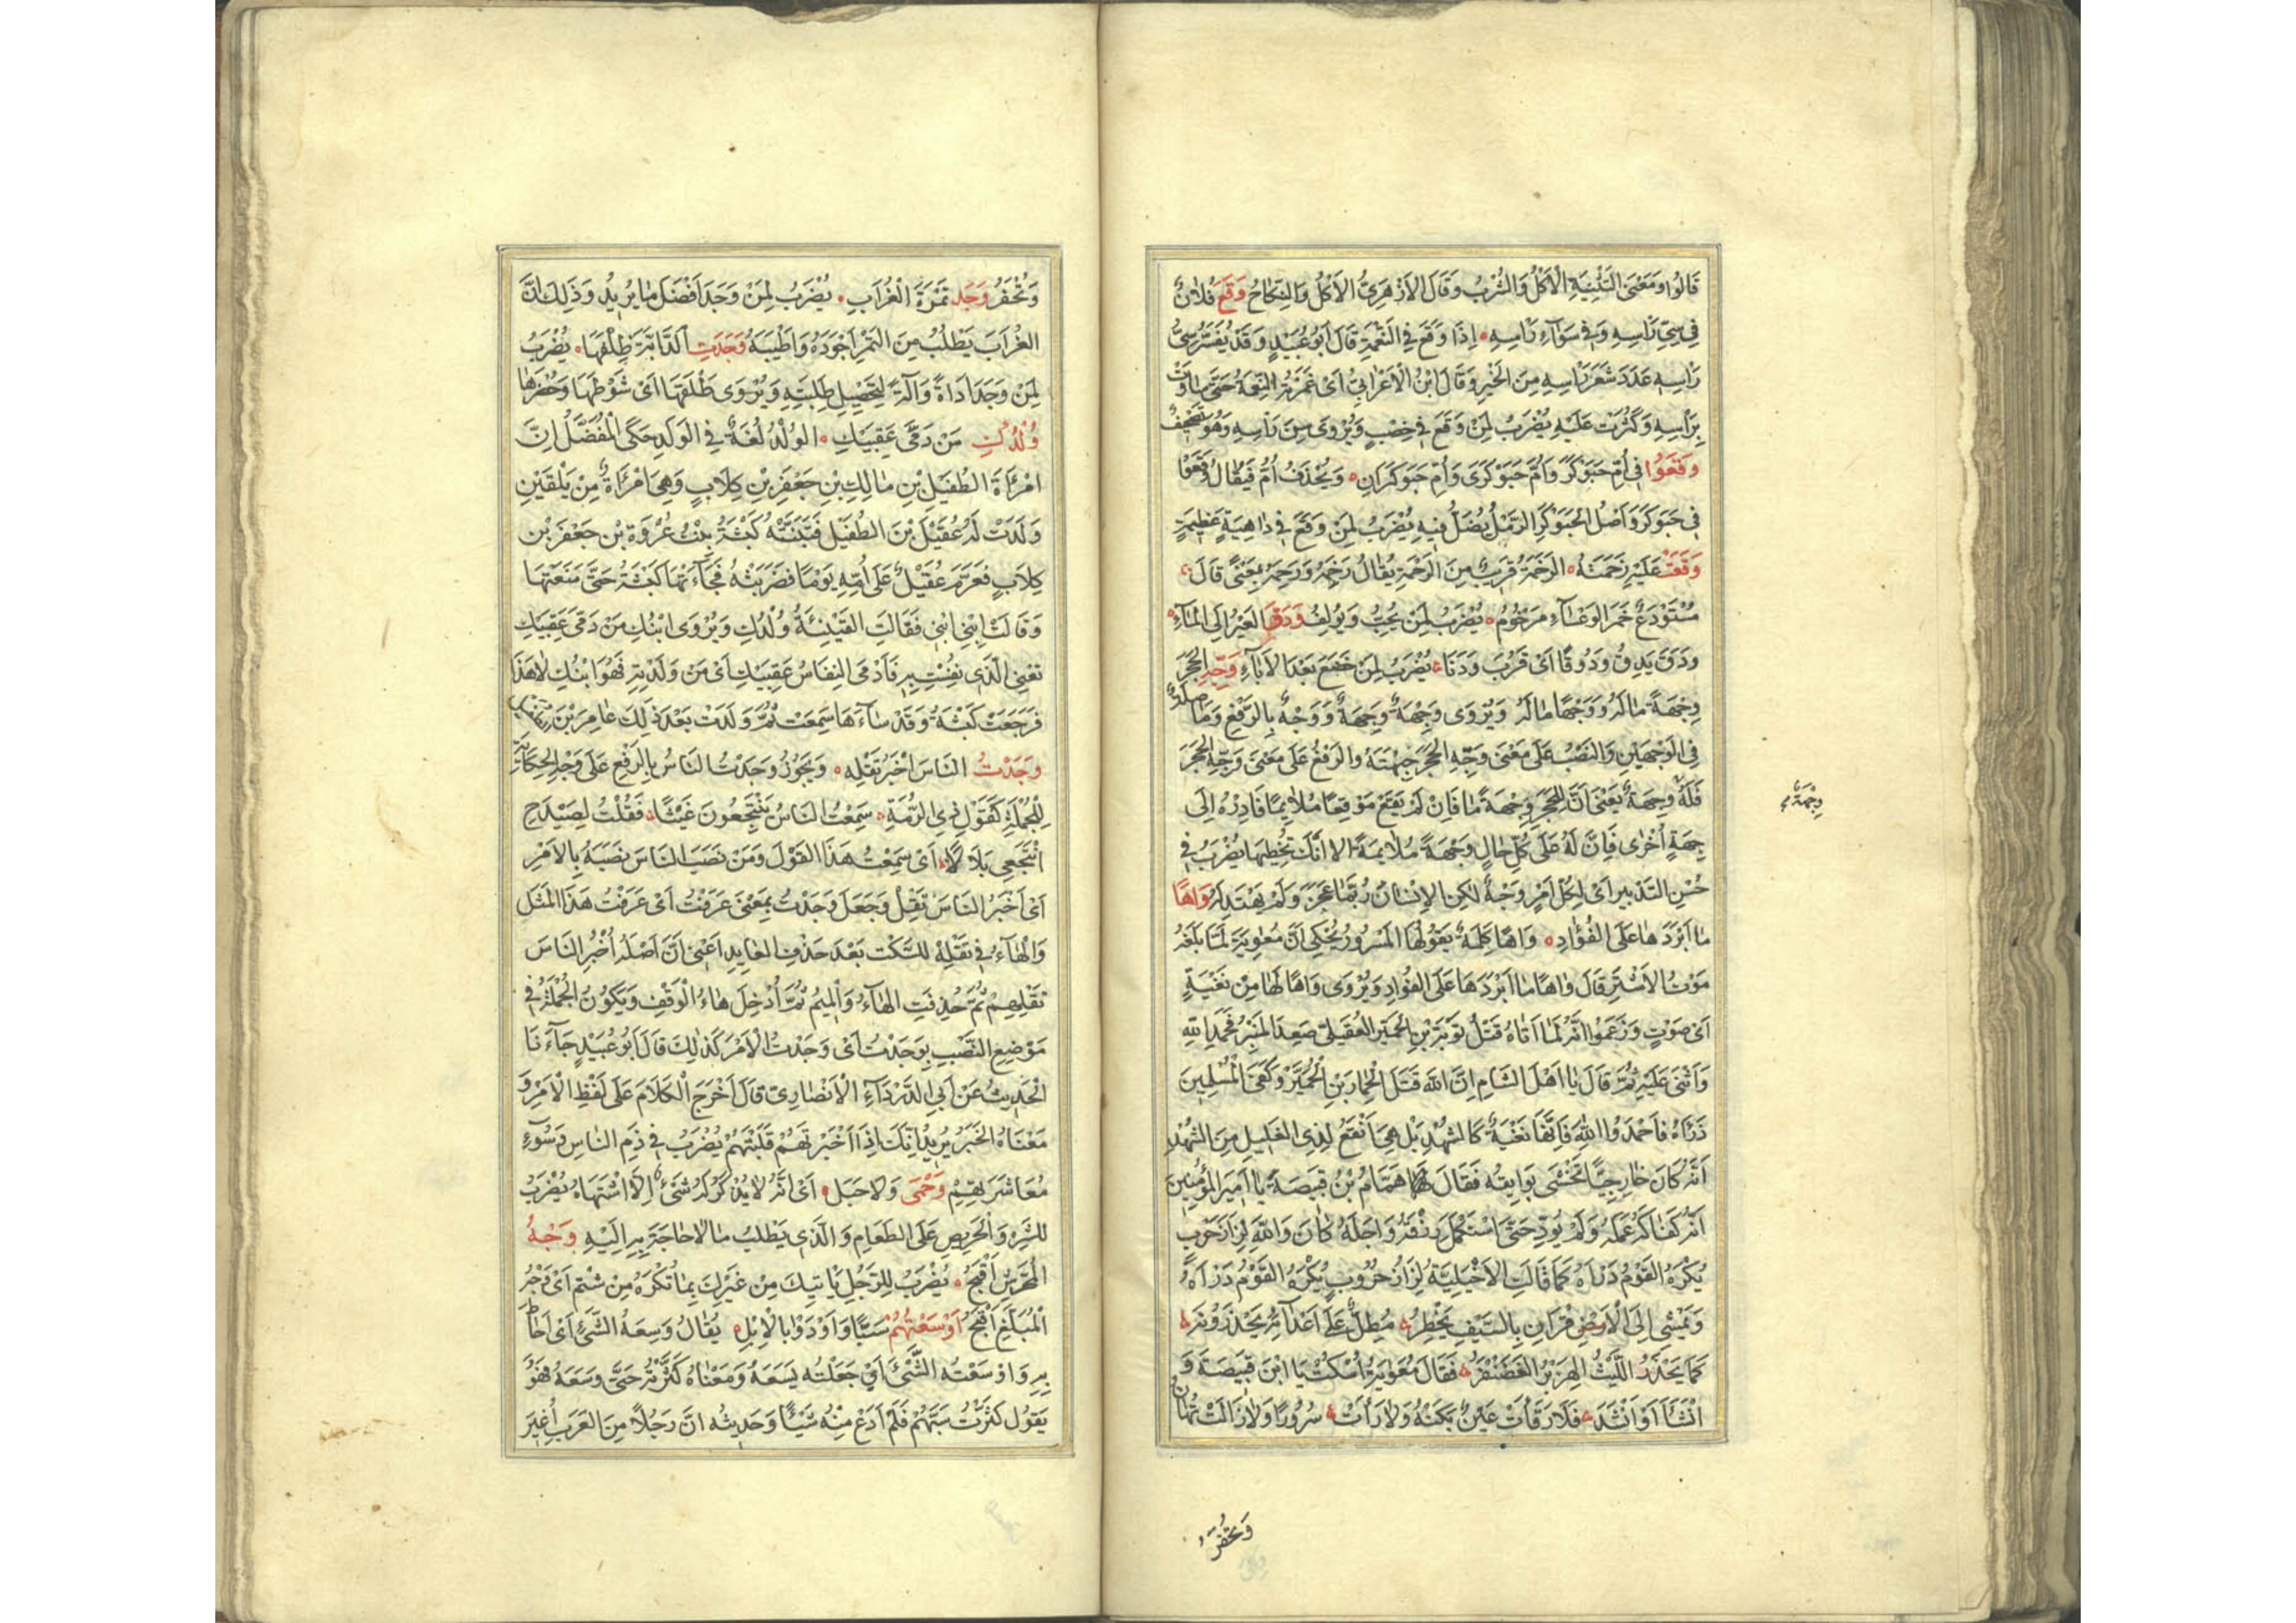 قَالُوا وَمَعْنَى التَّثْنِيَةِ الْأَكْلُ وَالشُّرْبُ وَقَالَ الْأَزْهَرِيُّ الْأَكْلُ وَالنِّكَاحُ وَقَعَ فُلَانٌ
فِي سِيِّ رَأْسِهِ وَفِي سَوَاءِ رَأْسِهِ إِذَا وَقَعَ فِي النِّعْمَةِ قَالَ أَبُو عُبَيْدٍ وَقَدْ يُفَسَّرُ سِيُّ
رَأْسِهِ عَدَدَ شَعَرِ رَأْسِهِ مِنَ الْخَيْرِ وَقَالَ ابْنُ الْأَعْرَابِيِّ أَيْ غَمَرَتْهُ النِّعْمَةُ حَتَّى سَاوَتْ
بِرَأْسِهِ وَكَثُرَتْ عَلَيْهِ يُضْرَبُ لِمَنْ وَقَعَ فِي خِصْبٍ وَيُرْوَى مِنْ رَأْسِهِ وَهُوَ تَصْحِيفٌ
وَقَعُوا فِي أُمِّ حَبَوْكَرٍ وَأُمِّ حَبَوْكَرَى وَأُمِّ حَبَوْكَرَانِ وَيُحْذَفُ أُمُّ فَيُقَالُ وَقَعُوا
فِي حَبَوْكَرَ وَأَصْلُ الْحَبَوْكَرِ الرَّمْلُ يُضَلُّ فِيهِ يُضْرَبُ لِمَنْ وَقَعَ فِي دَاهِيَةٍ عَظِيمَةٍ
وَقَعَتْ عَلَيْهِ رَخَمَتُهُ الرَّخَمَةُ قَرِيبٌ مِنَ الرَّحْمَةِ يُقَالُ رَخِمَهُ وَرَحِمَهُ بِمَعْنًى قَالَ
مُسْتَوْدَعٌ خَمَرَ الْوَعْسَاءِ مَرْخُومُ يُضْرَبُ لِمَنْ يُحِبُّ وَيُؤْلِفُ وَدَقَ الْعَيْرُ إِلَى الْمَاءِ
وَدَقَ يَدِقُ وَدُوقًا أَيْ قَرُبَ وَدَنَا يُضْرَبُ لِمَنْ خَضَعَ بَعْدَ الْإِبَاءِ وَجِّهِ الْحَجَرَ
وِجْهَةً مَا لَهُ وَوَجْهًا مَا لَهُ وَيُرْوَى وِجْهَةٌ وَجِهَةٌ وَوَجْهٌ بِالرَّفْعِ وَمَا صِلَةٌ
فِي الْوَجْهَيْنِ وَالنَّصْبُ عَلَى مَعْنَى وَجِّهِ الْحَجَرَ جِهَتَهُ وَالرَّفْعُ عَلَى مَعْنَى وَجِّهِ الْحَجَرَ
فَلَهُ وِجْهَةٌ يَعْنِي أَنَّ لِلْحَجَرِ وِجْهَةً مَا فَإِنْ لَمْ يَقَعْ مَوْقِعًا مُلَايِمًا فَأَدِرْهُ إِلَى
جِهَةٍ أُخْرَى فَإِنَّ لَهُ عَلَى كُلِّ حَالٍ وِجْهَةً مُلَايِمَةً إِلَّا أَنَّكَ تُخْطِيهَا يُضْرَبُ فِي
حُسْنِ التَّدْبِيرِ أَيْ لِكُلِّ أَمْرٍ وَجْهٌ لَكِنِ الْإِنْسَانُ رُبَّمَا عَجَزَ وَلَمْ يَهْتَدِ لَهُ وَاهًا
مَا أَبْرَدَهَا عَلَى الْفُؤَادِ وَاهًا كَلِمَةٌ يَقُولُهَا الْمَسْرُورُ يُحْكَى أَنَّ مُعَوِيَةَ لَمَّا بَلَغَهُ
مَوْتُ الْأَشْتَرِ قَالَ وَاهًا مَا أَبْرَدَهَا عَلَى الْفُؤَادِ وَيُرْوَى وَاهًا لَهَا مِنْ نَغْيَةٍ
أَيْ صَوْتٍ وَزَعَمُوا أَنَّهُ لَمَّا أَتَاهُ قَتْلُ تَوْبَةَ بْنِ الْحُمَيِّرِ الْعُقَيْلِيِّ صَعِدَ الْمِنْبَرَ فَحَمِدَ اللهَ
وَأَثْنَى عَلَيْهِ ثُمَّ قَالَ يَا أَهْلَ الشَّامِ إِنَّ اللهَ قَتَلَ الْحِمَارَ بْنَ الْحُمَيِّرِ وَكَفَى الْمُسْلِمِينَ
دَرْأَهُ فَاحْمَدُوا اللهَ فَإِنَّهَا نَغْيَةٌ كَالشُّهْدِ بَلْ هِيَ أَنْقَعُ لِذِي الْغَلِيلِ مِنَ الشُّهْدِ
أَنَّهُ كَانَ خَارِجِيًّا تُخْشَى بَوَايِقُهُ فَقَالَ هَمَّامُ بْنُ قَبِيصَةَ يَا أَمِيرَ الْمُؤْمِنِينَ
أَنَّهُ كَفَاكَهُ عَمَلُهُ وَلَمْ يُودِ حَتَّى اسْتَكْمَلَ رِزْقَهُ وَأَجَلَهُ كَانَ وَاللهِ لِزَازَ حَرْبٍ
يَكْرَهُ الْقَوْمُ دَرْأَهُ كَمَا قَالَتِ الْأَخْيَلِيَّةُ لِزَازُ حُرُوبٍ يَكْرَهُ الْقَوْمُ دَرْأَهُ
وَيَمْشِي إِلَى الْأَقْرَانِ بِالسَّيْفِ يَخْطِرُ مُطِلٌّ عَلَى أَعْدَائِهِ يَحْذَرُونَهُ
كَمَا يَحْذَرُ اللَّيْثُ الْهِزَبْرُ الْغَضَنْفَرُ فَقَالَ مُعَوِيَةُ اسْكُتْ يَا ابْنَ قَبِيصَةَ وَ
أَنْشَأَ أَوْ أَنْشَدَ فَلَا رَقَأَتْ عَيْنٌ بَكَتْهُ وَلَا رَأَتْ سُرُورًا وَلَا زَالَتْ تُهَانُ
وِجْهَةٌ
وَتُحْقَرُ
وَتُحْقَرُ وَجَدَ تَمْرَةَ الْغُرَابِ يُضْرَبُ لِمَنْ وَجَدَ أَفْضَلَ مَا يُرِيدُ وَذَلِكَ أَنَّ
الْغُرَابَ يَطْلُبُ مِنَ التَّمْرِ أَجْوَدَهُ وَأَطْيَبَهُ وَجَدَتِ الدَّابَّةُ ظِلْفَهَا يُضْرَبُ
لِمَنْ وَجَدَ أَدَاةً وَآلَةً لِتَحْصِيلِ طَلِبَتِهِ وَيُرْوَى طَلَقَهَا أَيْ شَوْطَهَا وَحُضْرَهَا
وُلْدُكِ مَنْ دَمَّى عَقِبَيْكِ الْوُلْدُ لُغَةٌ فِي الْوَلَدِ حَكَى الْمُفَضَّلُ إِنَّ
امْرَأَةَ الطُّفَيْلِ بْنِ مَالِكِ بْنِ جَعْفَرِ بْنِ كِلَابٍ وَهِيَ امْرَأَةٌ مِنْ بَلْقَيْنِ
وَلَدَتْ لَهُ عُقَيْلَ بْنَ الطُّفَيْلِ فَتَبَنَّتْهُ كَبْشَةُ بِنْتُ عُرْوَةَ بْنِ جَعْفَرَ بْنِ
كِلَابٍ فَعَرَمَ عُقَيْلٌ عَلَى أُمِّهِ يَوْمًا فَضَرَبَتْهُ فَجَاءَتْهَا كَبْشَةُ حَتَّى مَنَعَتْهَا
وَقَالَتِ ابْنِي ابْنِي فَقَالَتِ الْقَيْنِيَّةُ وُلْدُكِ وَيُرْوَى ابْنُكِ مَنْ دَمَّى عَقِبَيْكِ
تَعْنِي الَّذِي نُفِسْتِ بِهِ فَأَدْمَى النِّفَاسُ عَقِبَيْكِ أَيْ مَنْ وَلَدْتِهِ فَهُوَ ابْنُكِ لَا هَذَا
فَرَجَعَتْ كَبْشَةُ وَقَدْ سَاءَهَا سَمِعَتْ ثُمَّ وَلَدَتْ بَعْدَ ذَلِكَ عَامِرَ بْنَ
وَجَدْتُ النَّاسَ اخْبُرْ تَقْلِهِ وَيَجُوزُ وَجَدْتُ النَّاسُ بِالرَّفْعِ عَلَى وَجْهِ الْحِكَايَةِ
لِلْجُمْلَةِ كَقَوْلِ ذِي الرُّمَّةِ سَمِعْتُ النَّاسُ يَنْتَجِعُونَ غَيْثًا فَقُلْتُ لِصَيْدَحَ
انْتَجِعِي بِلَالًا أَيْ سَمِعْتُ هَذَا الْقَوْلَ وَمَنْ نَصَبَ النَّاسَ نَصَبَهُ بِالْأَمْرِ
أَيْ أَخْبُرُ النَّاسَ تَقْلِ وَجَعَلَ وَجَدْتُ بِمَعْنَى عَرَفْتُ أَيْ عَرَفْتُ هَذَا الْمَثَلَ
وَالْهَاءُ فِي تَقْلِهِ لِلسَّكْتِ بَعْدَ حَذْفِ الْعَايِدِ أَعْنِي أَنَّ أَصْلَهُ أُخْبُرِ النَّاسَ
تَقْلِهِمْ ثُمَّ حُذِفَتِ الْهَاءُ وَالْمِيمُ ثُمَّ أُدْخِلَ هَاءُ الْوَقْفِ وَيَكُونُ الْجُمْلَةُ فِي
مَوْضِعِ النَّصْبِ بِوَجَدْتُ أَيْ وَجَدْتُ الْأَمْرَ كَذَلِكَ قَالَ أَبُو عُبَيْدٍ جَاءَنَا
الْحَدِيثُ عَنْ أَبِي الدَّرْدَاءِ الْأَنْصَارِيِّ قَالَ أَخْرَجَ الْكَلَامَ عَلَى لَفْظِ الْأَمْرِ وَ
مَعْنَاهُ الْخَبَرُ يُرِيدُ أَنَّكَ إِذَا أَخْبَرْتَهُمْ قَلَيْتَهُمْ يُضْرَبُ فِي ذَمِّ النَّاسِ وَسُوءِ
مُعَاشَرَتِهِمْ وَحْمَى وَلَا حَبَلَ أَيْ أَنَّهُ لَا يُذْكَرُ لَهُ شَيْءٌ إِلَّا اشْتَهَاهُ يُضْرَبُ
لِلشَّرِهِ وَالْحَرِيصِ عَلَى الطَّعَامِ وَالَّذِي يَطْلُبُ مَا لَا حَاجَةَ بِهِ إِلَيْهِ وَجْهُ
الْمُحَرِّشِ أَقْبَحُ يُضْرَبُ لِلرَّجُلِ يَأْتِيكَ مِنْ غَيْرِكَ بِمَا تَكْرَهُ مِنْ شَتْمٍ أَيْ وَجْهُ
الْمُبَلِّغِ أَقْبَحُ أَوْسَعْتُهُمْ سَبًّا وَأَوْدَوْا بِالْإِبِلِ يُقَالُ وَسِعَهُ الشَّيْءُ أَيْ أَحَاطَ
بِهِ وَأَوْسَعْتُهُ الشَّيْءَ أَيْ جَعَلْتُهُ يَسَعُهُ وَمَعْنَاهُ كَثَّرْتُهُ حَتَّى وَسِعَهُ فَهُوَ
يَقُولُ كَثَّرْتُ سَبَّهُمْ فَلَمْ أَدَعْ مِنْهُ شَيْئًا وَحَدِيثُهُ أَنَّ رَجُلًا مِنَ الْعَرَبِ أُغِيرَ